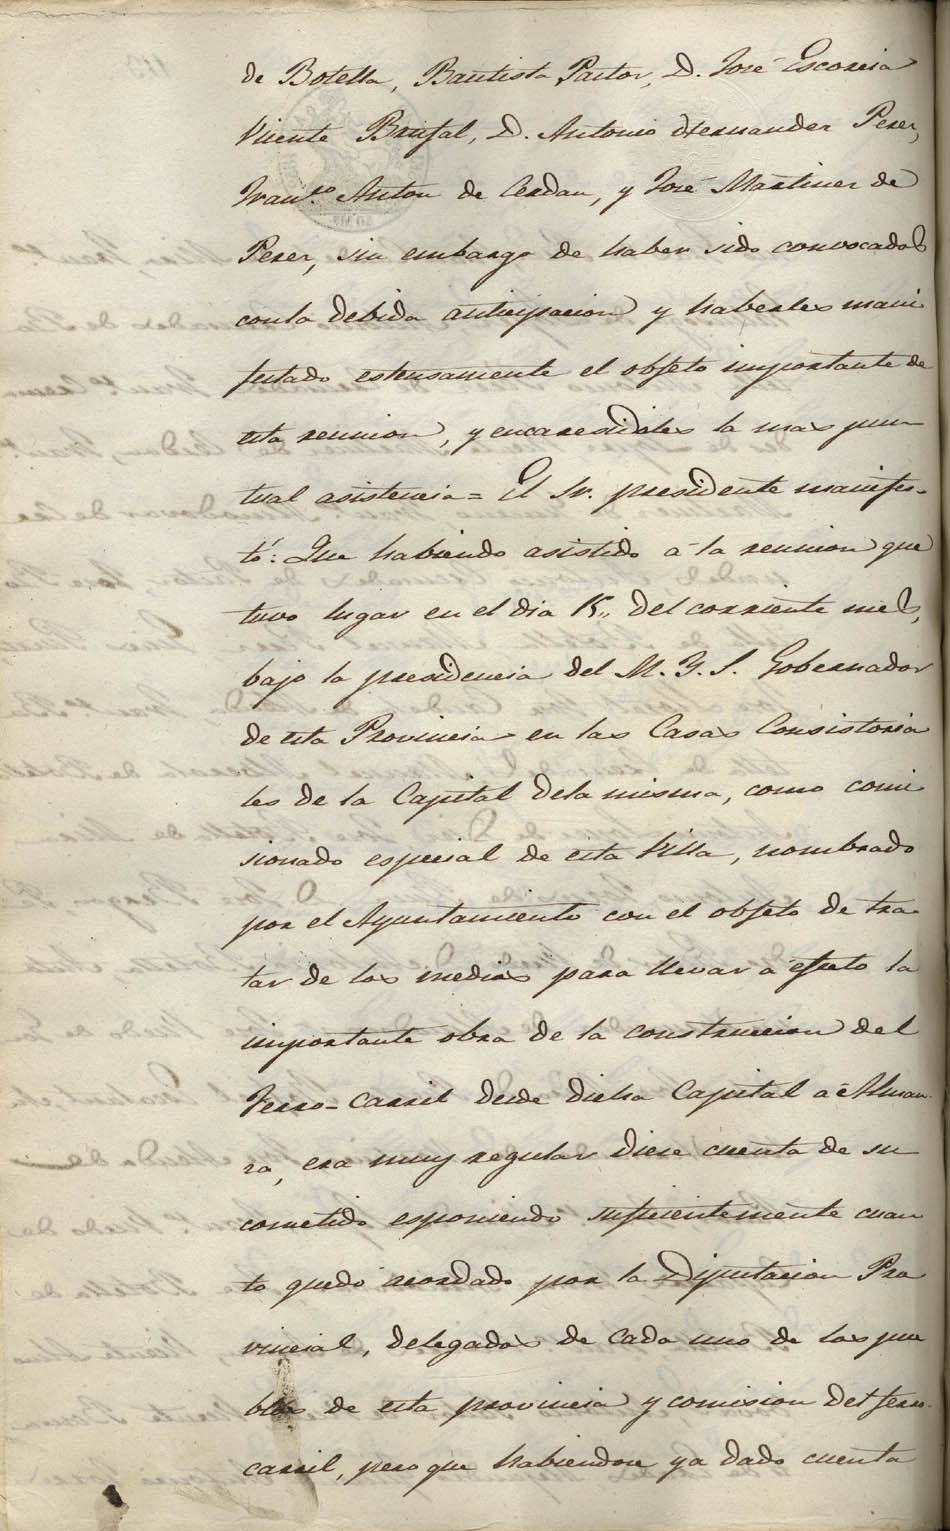 de Botella, Bautista Pastor, D. José Escorcia
Vicente Brufal, D. Antonio Hernander Perer,
Fran.co Anton de Cerdan, y José Martiner de
Perer, sin embargo de haber sido convocados
con la debida anticipacion y haberles mani
festado estensamente el objeto importante de
esta reunion, y encarecidoles la mas pun
tual asistencia = El Sr. presidente manifes-
tó: Que habiendo asistido á la reunion que
tuvo lugar en el dia 15,, del corriente mes,
bajo la presidencia del M. Y. S. Gobernador
de esta Provincia en las Casas Consistoria
les de la Capital dela misma, como comi
sionado especial de esta Villa, nombrado
por el Ayuntamiento con el objeto de tra-
tar de los medios para llevar á efecto la
importante obra de la construccion del
Ferro=carril desde dicha Capital á Alman-
ra, era muy regular diese cuenta de su
cometido esponiendo suficientemente cuan
to quedó acordado por la Diputacion Pro
vincial, delegados de cada uno de los pue
blos de esta provincia y comision del ferro-
carril, pero que habiendose ya dado cuenta